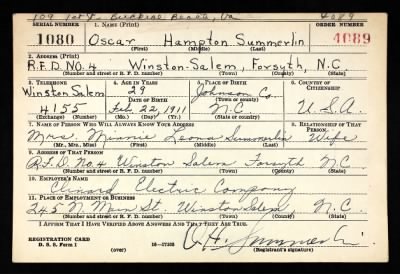 Buckroe Beach, Va
SERIAL NUMBER 1. NAME (Print) ORDER NUMBER
1080 Oscar Hampton Summerlin 4089
(First) (Middle) (Last)
2. ADDRESS (Print)
R.F.D. No. 4 Winston-Salem, Forsyth, N.C.
(Number and street or R. F. D. number) (Town) (County) (State)
3. TELEPHONE 4. AGE IN YEARS 5. PLACE OF BIRTH 6. COUNTRY OF CITIZENSHIP
Winston Salem 29 Johnson Co.
DATE OF BIRTH (Town or county)
4155 Feb. 22, 1911 N.C. U.S.A.
(Exchange) (Number) (Mo.) (Day) (Yr.) (State or country)
7. NAME OF PERSON WHO WILL ALWAYS KNOW YOUR ADDRESS 8. RELATIONSHIP OF THAT PERSON
Mrs. Minnie Leona Summerlin Wife
(Mr., Mrs., Miss) (First) (Middle) (Last)
9. ADDRESS OF THAT PERSON
R.F.D. No. 4 Winston Salem Forsyth N.C.
(Number and street or R. F. D. number) (Town) (County) (State)
10. EMPLOYER'S NAME
Clinard Electric Company
11. PLACE OF EMPLOYMENT OR BUSINESS
245 N. Main St. Winston Salem, N.C.
(Number and street or R. F. D. number) (Town) (County) (State)
I AFFIRM THAT I HAVE VERIFIED ABOVE ANSWERS AND THAT THEY ARE TRUE.
REGISTRATION CARD
D. S. S. Form 1 (over) 16—17105 (Registrant's signature)
O.H. Summerlin